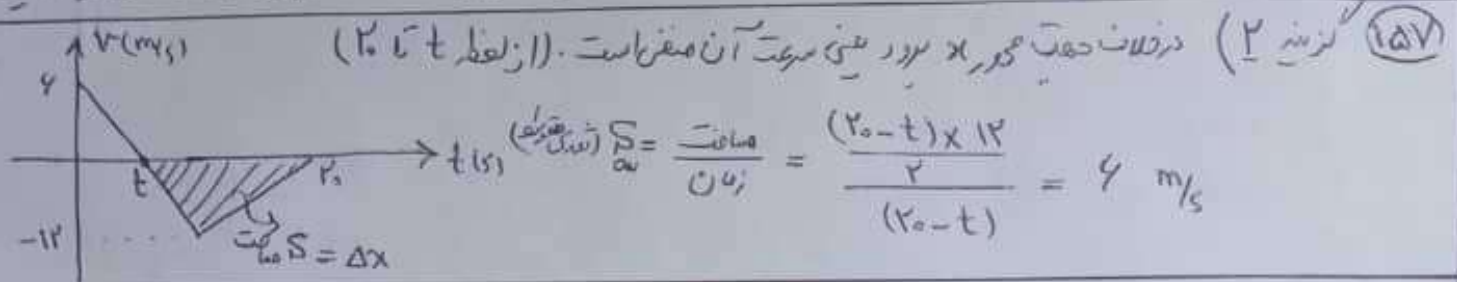 ۱۵۷ گزینه ۲) در خلاف جهت محور x میرود یعنی سرعت آن منفی است. (از لحظه t تا ۲۰)
V(m/s)
۶
t
۲۰
t(s)
-۱۲
مسافت S = Δx
S av = مسافت / زمان = ((۲۰-t)×۱۲ / ۲) / (۲۰-t) = ۶ m/s